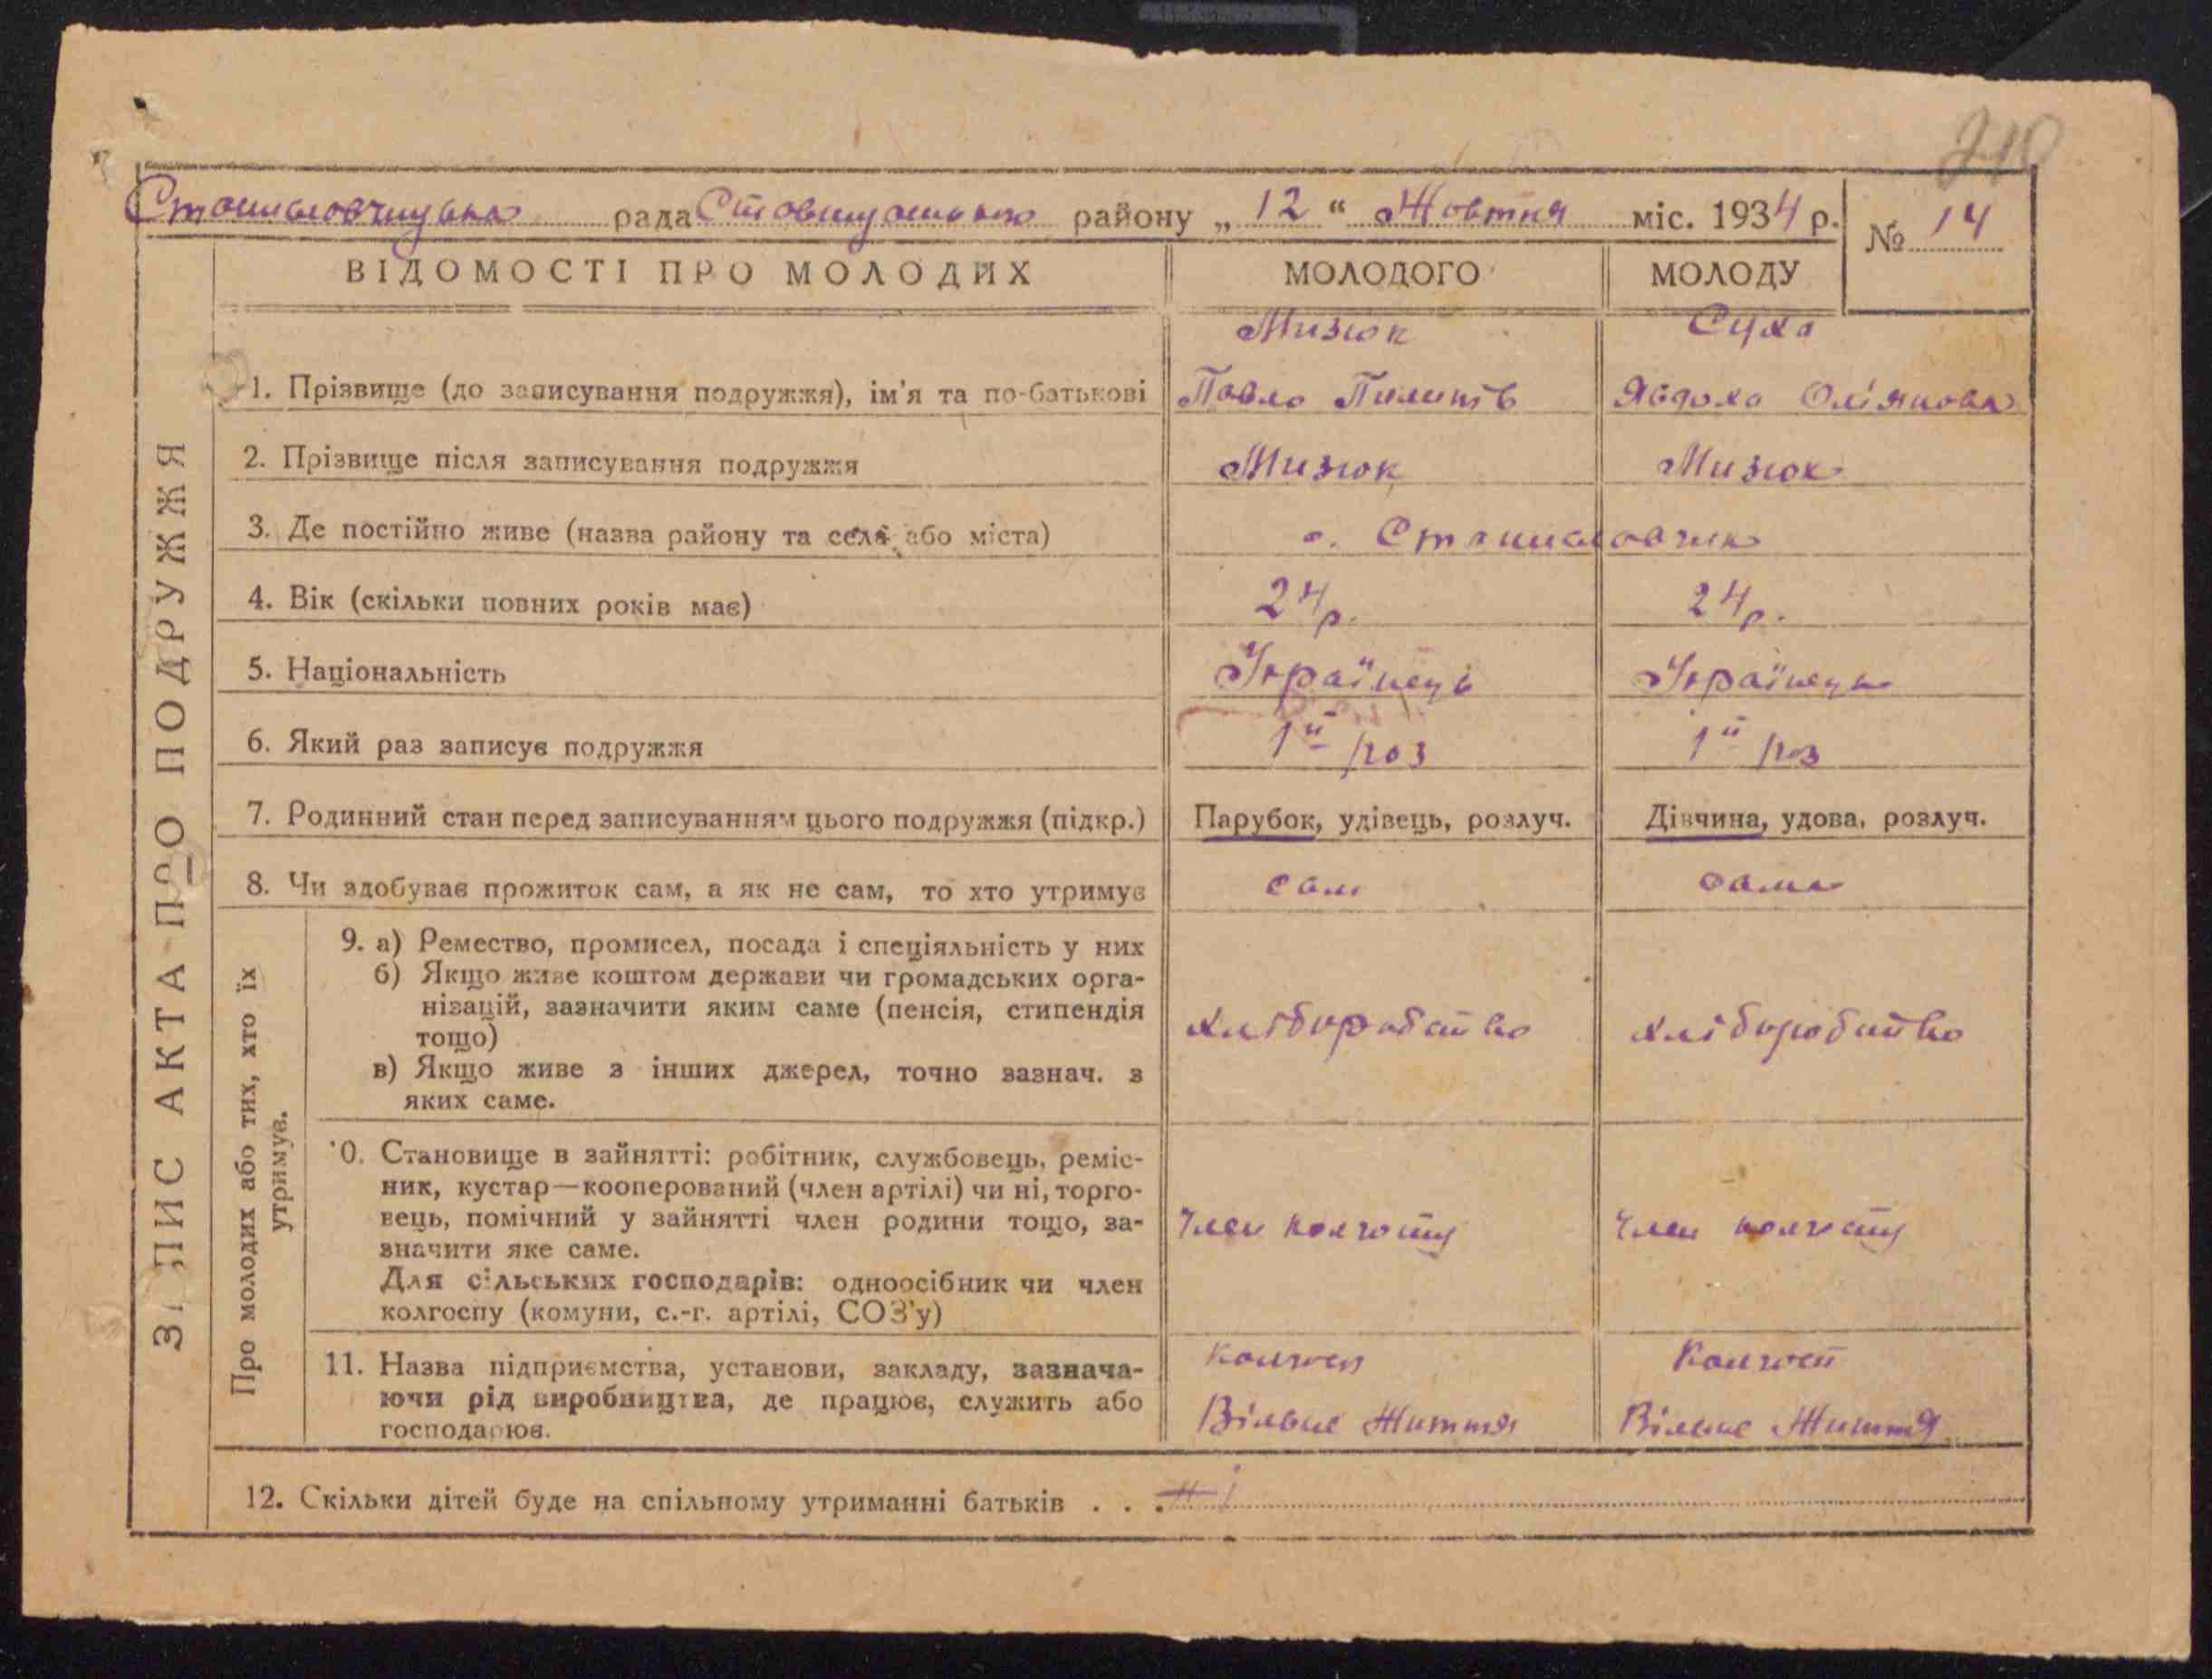 210
Станиславчицька рада Ставищанського району „ 12 “ Жовтня міс. 1934 р.
№ 14
ВІДОМОСТІ ПРО МОЛОДИХ
МОЛОДОГО
МОЛОДУ
ЗАПИС АКТА ПРО ПОДРУЖЖЯ
Мизюк
Суха
1. Прізвище (до записування подружжя), ім'я та по-батькові
Павло Пилипів
Явдоха
2. Прізвище після записування подружжя
Мизюк
Мизюк
3. Де постійно живе (назва району та села або міста)
с. Станиславчик
4. Вік (скільки повних років має)
24 р.
24 р.
5. Національність
Українець
Українець
6. Який раз записує подружжя
1й раз
1й раз
7. Родинний стан перед записуванням цього подружжя (підкр.)
Парубок, удівець, розлуч.
Дівчина, удова, розлуч.
8. Чи здобуває прожиток сам, а як не сам, то хто утримує
сам
сама
Про молодих або тих, хто їх
утримує.
9. а) Ремество, промисел, посада і спеціяльність у них
б) Якщо живе коштом держави чи громадських орга-
нізацій, зазначити яким саме (пенсія, стипендія
тощо)
в) Якщо живе з інших джерел, точно зазнач. з
яких саме.
хліборобство
хліборобство
10. Становище в зайнятті: робітник, службовець, реміс-
ник, кустар—кооперований (член артілі) чи ні, торго-
вець, помічний у зайнятті член родини тощо, за-
значити яке саме.
Для сільських господарів: одноосібник чи член
колгоспу (комуни, с.-г. артілі, СОЗ'у)
Член колгоспу
Член колгоспу
11. Назва підприємства, установи, закладу, зазнача-
ючи рід виробництва, де працює, служить або
господарює.
Колгосп
Вільне Життя
Колгосп
Вільне Життя
12. Скільки дітей буде на спільному утриманні батьків . . .